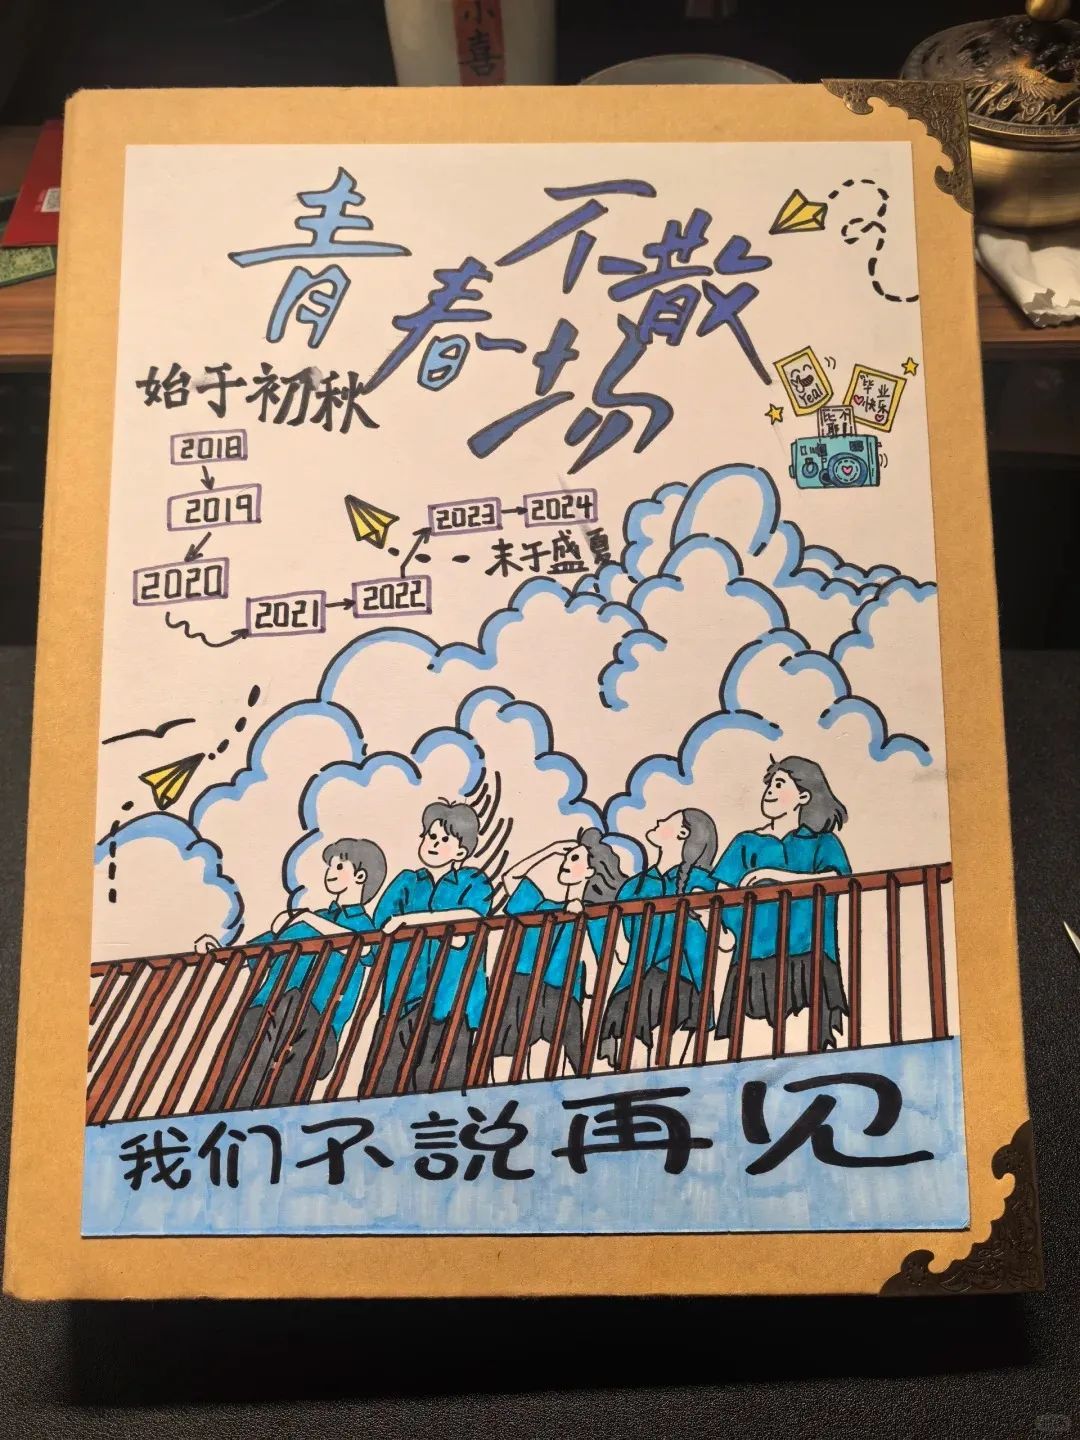 小喜
青春不散场
始于初秋
2018
2019
2020
2021
2022
2023
2024
末于盛夏
Yea!
毕业
快乐
我们不説再见